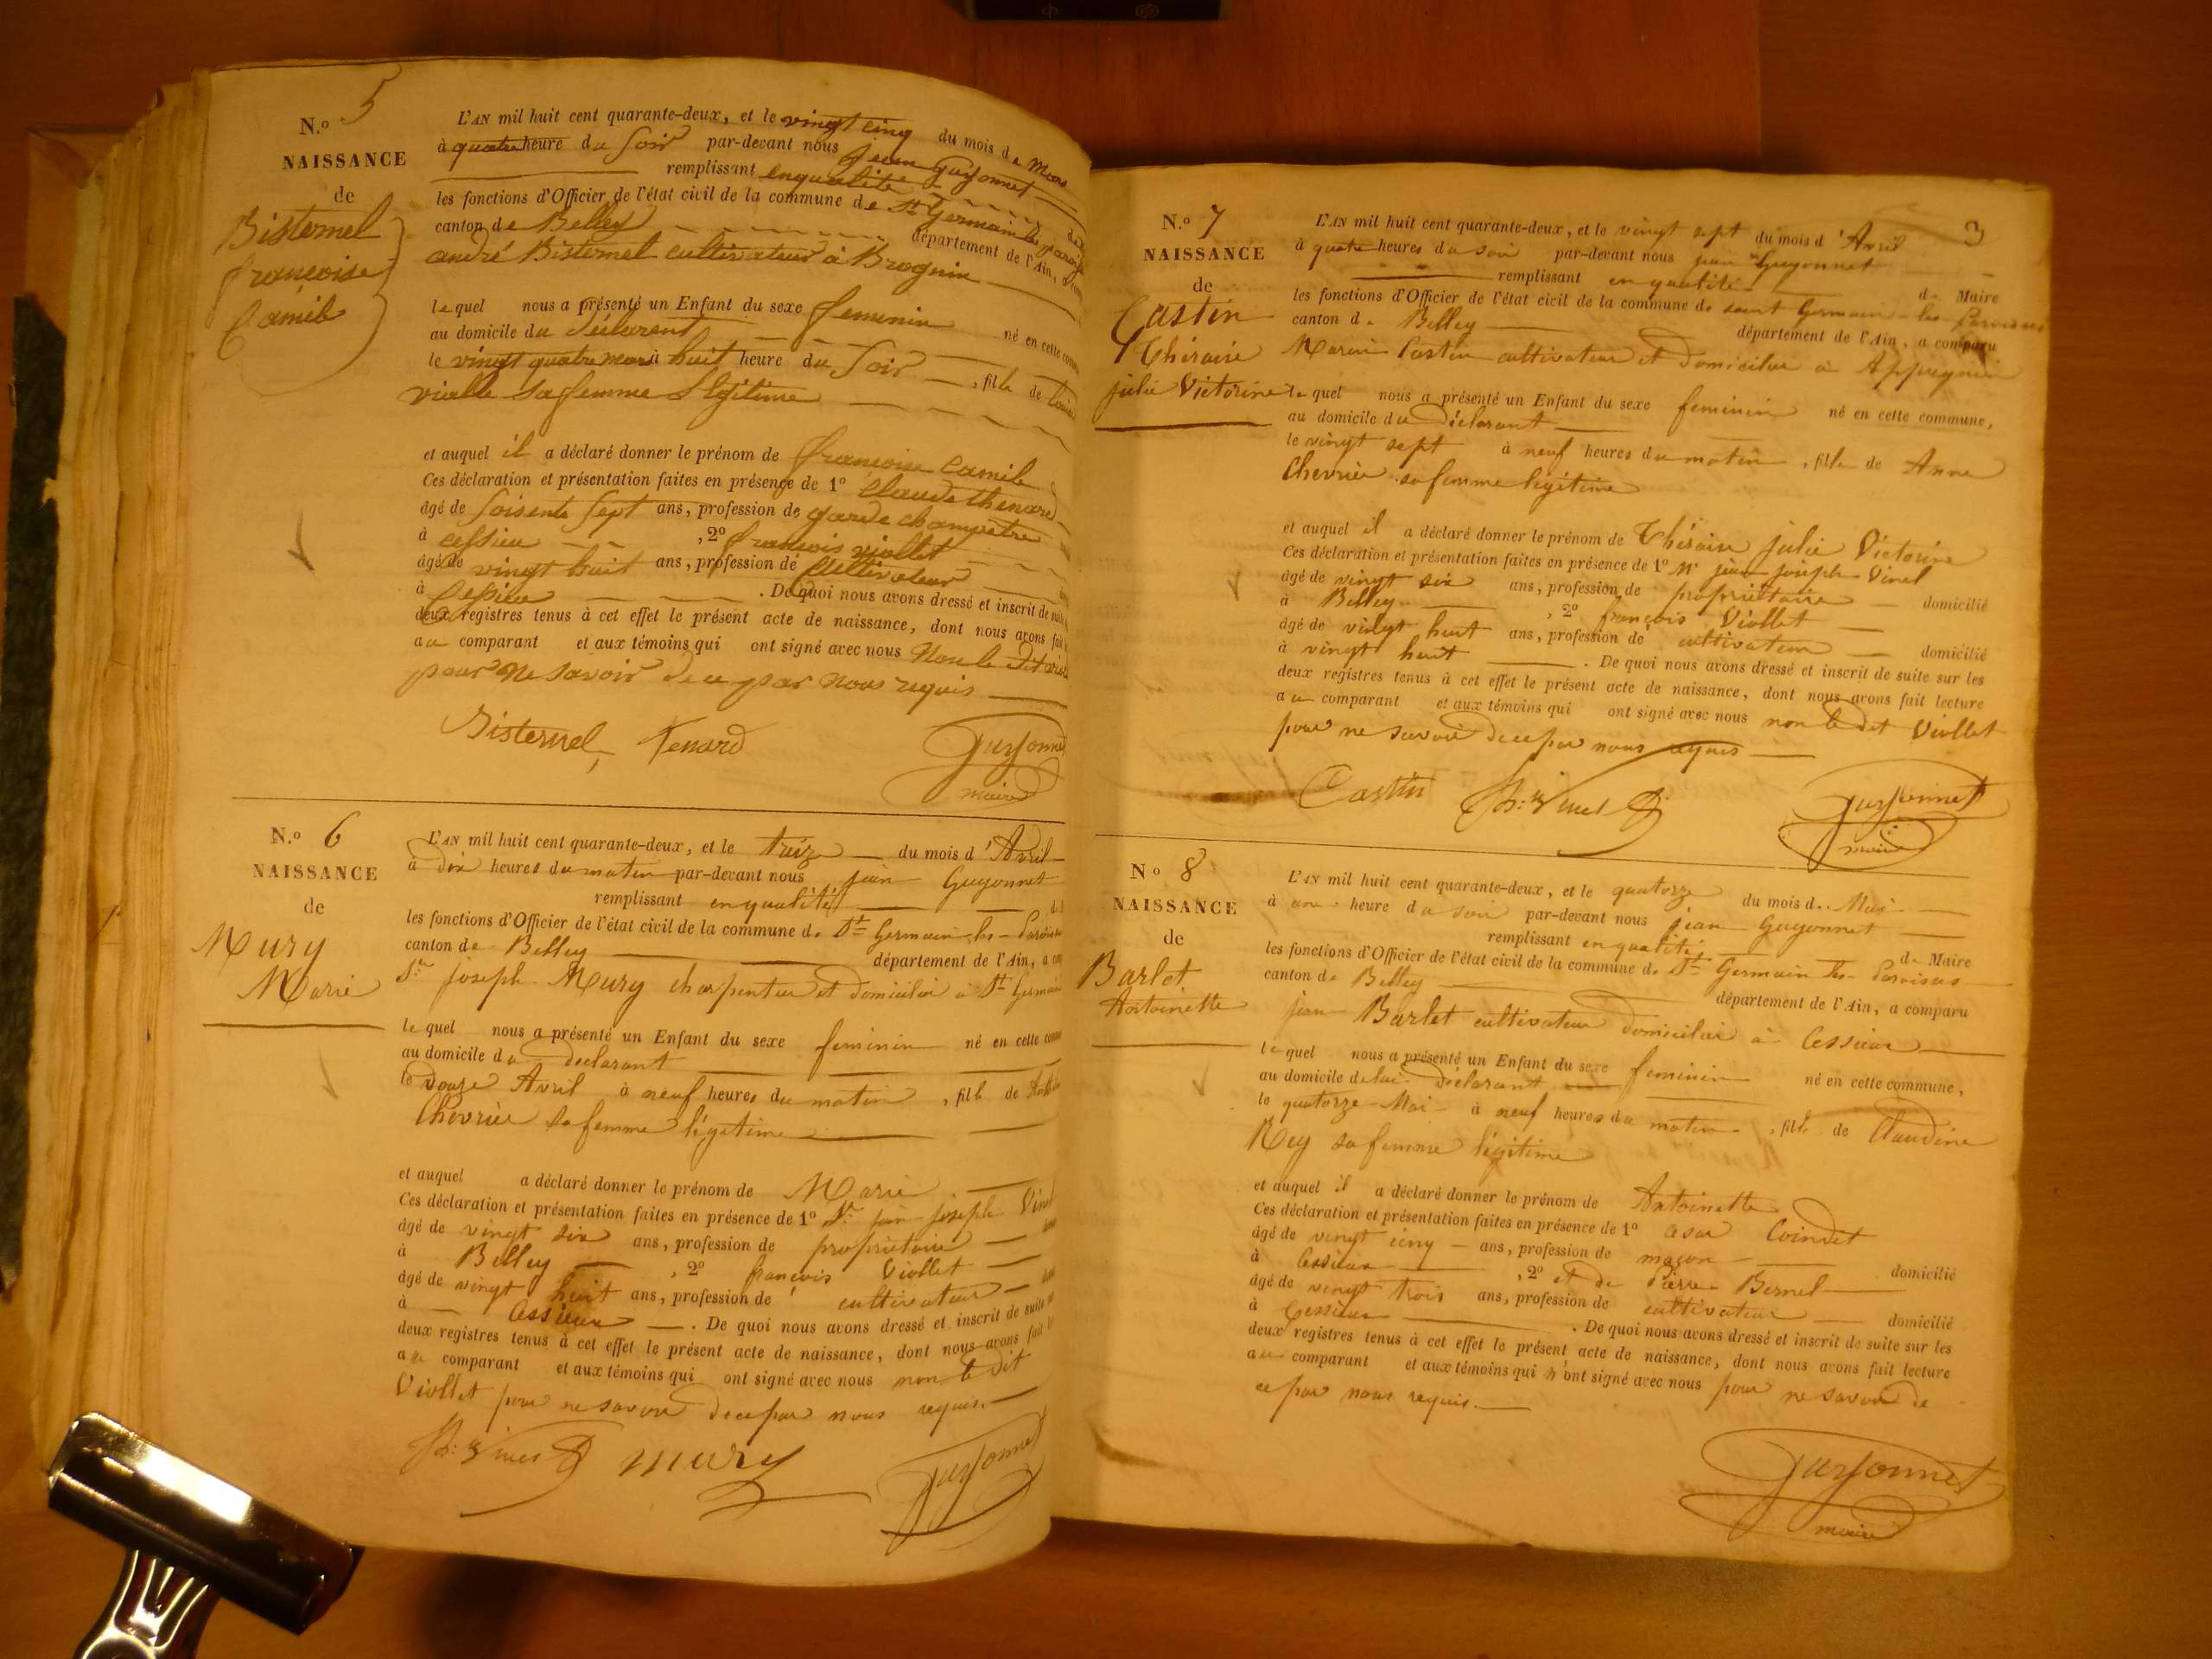 N.º 5
NAISSANCE
de
Bisternel
françoise
Camile
L'AN mil huit cent quarante-deux, et le vingt cinq du mois de Mars
à quatre heure du Soir par-devant nous jean Guyonnet
remplissant en qualité
les fonctions d'Officier de l'état civil de la commune de St Germain les paroisses
canton de Belley département de l'Ain, a
andré Bisternel cultivateur à Brognin
lequel nous a présenté un Enfant du sexe feminin né en cette
au domicile du déclarent
le vingt quatre mars à huit heure du Soir , fille de Louise
vialle sa femme légitime
et auquel il a déclaré donner le prénom de francoise Camile
Ces déclaration et présentation faites en présence de 1º Claude thenard
âgé de Soisente Sept ans, profession de garde champetre
à cessieu , 2º francois viollet
âgé de vingt huit ans, profession de Cultivateur
à Cessieu . De quoi nous avons dressé et inscrit de suite
deux registres tenus à cet effet le présent acte de naissance, dont nous avons fait
au comparant et aux témoins qui ont signé avec nous Non le dit
pour ne savoir de ce par nous requis
Bisternel Tenard Guyonnet
maire
N.º 6
NAISSANCE
de
Mury
Marie
L'AN mil huit cent quarante-deux, et le treize du mois d'Avril
à dix heures du matin par-devant nous jean Guyonnet
remplissant en qualité
les fonctions d'Officier de l'état civil de la commune de St Germain les Paroisses
canton de Belley département de l'Ain, a
Sr joseph Mury charpentier et domicilié à St Germain
lequel nous a présenté un Enfant du sexe feminin né en cette
au domicile du declarant
le douze Avril à neuf heures du matin , fille de
Chevrier sa femme légitime
et auquel a déclaré donner le prénom de Marie
Ces déclaration et présentation faites en présence de 1º Sr jean joseph Vinel
âgé de vingt six ans, profession de propriétaire
à Belley , 2º françois Viollet
âgé de vingt huit ans, profession de cultivateur
à Cessieux . De quoi nous avons dressé et inscrit de suite
deux registres tenus à cet effet le présent acte de naissance, dont nous avons fait
au comparant et aux témoins qui ont signé avec nous non le dit
Viollet pour ne savoir de ce par nous requis.
Vinel mury Guyonnet
3
N.º 7
NAISSANCE
de
Castin
Théraise
julie Victorine
L'AN mil huit cent quarante-deux, et le vingt sept du mois d'Avril
à quatre heures du soir par-devant nous jean Guyonnet
remplissant en qualité de Maire
les fonctions d'Officier de l'état civil de la commune de saint Germain les Paroisses
canton de Belley département de l'Ain, a comparu
Marin Castin cultivateur et domicilié à Appregnin
lequel nous a présenté un Enfant du sexe feminin né en cette commune,
au domicile du déclarant
le vingt sept à neuf heures du matin , fille de Anne
Chevrier sa femme légitime
et auquel il a déclaré donner le prénom de Théraise julie Victorine
Ces déclaration et présentation faites en présence de 1º Mr jean joseph Vinel
âgé de vingt six ans, profession de propriétaire domicilié
à Belley , 2º françois Viollet
âgé de vingt huit ans, profession de cultivateur domicilié
à vingt huit . De quoi nous avons dressé et inscrit de suite sur les
deux registres tenus à cet effet le présent acte de naissance, dont nous avons fait lecture
au comparant et aux témoins qui ont signé avec nous non le dit Viollet
pour ne savoir de ce par nous requis
Castin Vinel Guyonnet
maire
Nº 8
NAISSANCE
de
Barlet
Antoinette
L'AN mil huit cent quarante-deux, et le quatorze du mois de Mai
à une heure du soir par-devant nous jean Guyonnet
remplissant en qualité de Maire
les fonctions d'Officier de l'état civil de la commune de St Germain les Paroisses
canton de Belley département de l'Ain, a comparu
jean Barlet cultivateur domicilié à Cessieux
lequel nous a présenté un Enfant du sexe feminin né en cette commune,
au domicile de lui déclarant
le quatorze Mai à neuf heures du matin , fille de Claudine
Rey sa femme légitime
et auquel il a déclaré donner le prénom de Antoinette
Ces déclaration et présentation faites en présence de 1º Coindet
âgé de vingt cinq ans, profession de maçon domicilié
à Cessieux , 2º et de Pierre Bernel
âgé de vingt trois ans, profession de cultivateur domicilié
à Cessieux . De quoi nous avons dressé et inscrit de suite sur les
deux registres tenus à cet effet le présent acte de naissance, dont nous avons fait lecture
au comparant et aux témoins qui n'ont signé avec nous pour ne savoir de
ce par nous requis.
Guyonnet
maire